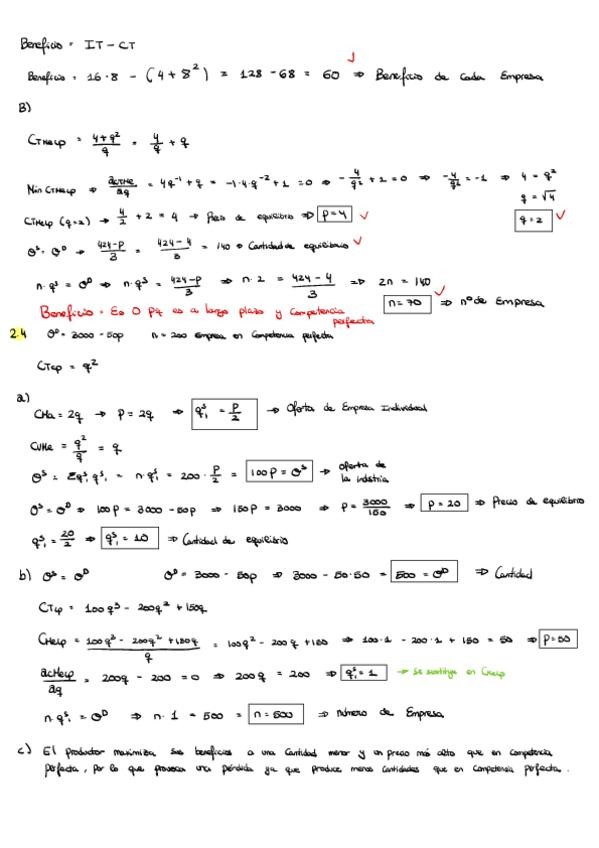 Beneficio = IT - CT
Beneficio = 16·8 - (4+8²) = 128 - 68 = 60 ⇒ Beneficio de cada Empresa
B)
CTMeLp = (4+q²)/q = 4/q + q
Min CTMeLp ⇒ ∂CTMe/∂q = 4q⁻¹ + q = -1·4·q⁻² + 1 = 0 ⇒ -4/q² + 1 = 0 ⇒ -4/q² = -1 ⇒ 4 = q²
q = √4
CTMeLp (q=2) → 4/2 + 2 = 4 → Precio de equilibrio ⇒ p=4 q=2
Qˢ = Qᴰ → (424-P)/3 = (424-4)/3 = 140 → Cantidad de equilibrio
n·qˢ = Qᴰ ⇒ n·qˢ = (424-P)/3 ⇒ n·2 = (424-4)/3 ⇒ 2n = 140
n=70 ⇒ nº de Empresa
Beneficio = Es 0 pq es a largo plazo y competencia perfecta
2.4 Qᴰ = 3000 - 50p n = 200 empresa en Competencia perfecta
CTcp = q²
a)
CMa = 2q → P = 2q ⇒ qˢᵢ = P/2 → Oferta de Empresa Individual
CVMe = q²/q = q
Qˢ = Σqˢᵢ qˢᵢ = n·qˢᵢ = 200·P/2 = 100P = Qˢ → oferta de la industria
Qˢ = Qᴰ ⇒ 100P = 3000 - 50P ⇒ 150P = 3000 ⇒ P = 3000/150 ⇒ P = 20 ⇒ Precio de equilibrio
qˢᵢ = 20/2 ⇒ qˢᵢ = 10 ⇒ Cantidad de equilibrio
b) Qˢ = Qᴰ Qᴰ = 3000 - 50p ⇒ 3000 - 50·50 = 500 = Qᴰ ⇒ Cantidad
CTLp = 100q³ - 200q² + 150q
CMeLp = (100q³ - 200q² + 150q)/q = 100q² - 200q + 150 ⇒ 100·1 - 200·1 + 150 = 50 ⇒ P=50
∂CMeLp/∂q = 200q - 200 = 0 ⇒ 200q = 200 ⇒ qˢᵢ = 1 → se sustituye en CMeLp
n·qˢᵢ = Qᴰ ⇒ n·1 = 500 = n=500 ⇒ número de Empresa
c) El productor maximiza sus beneficios a una cantidad menor y un precio más alto que en competencia
perfecta, por lo que provoca una pérdida ya que produce menos cantidades que en competencia perfecta.